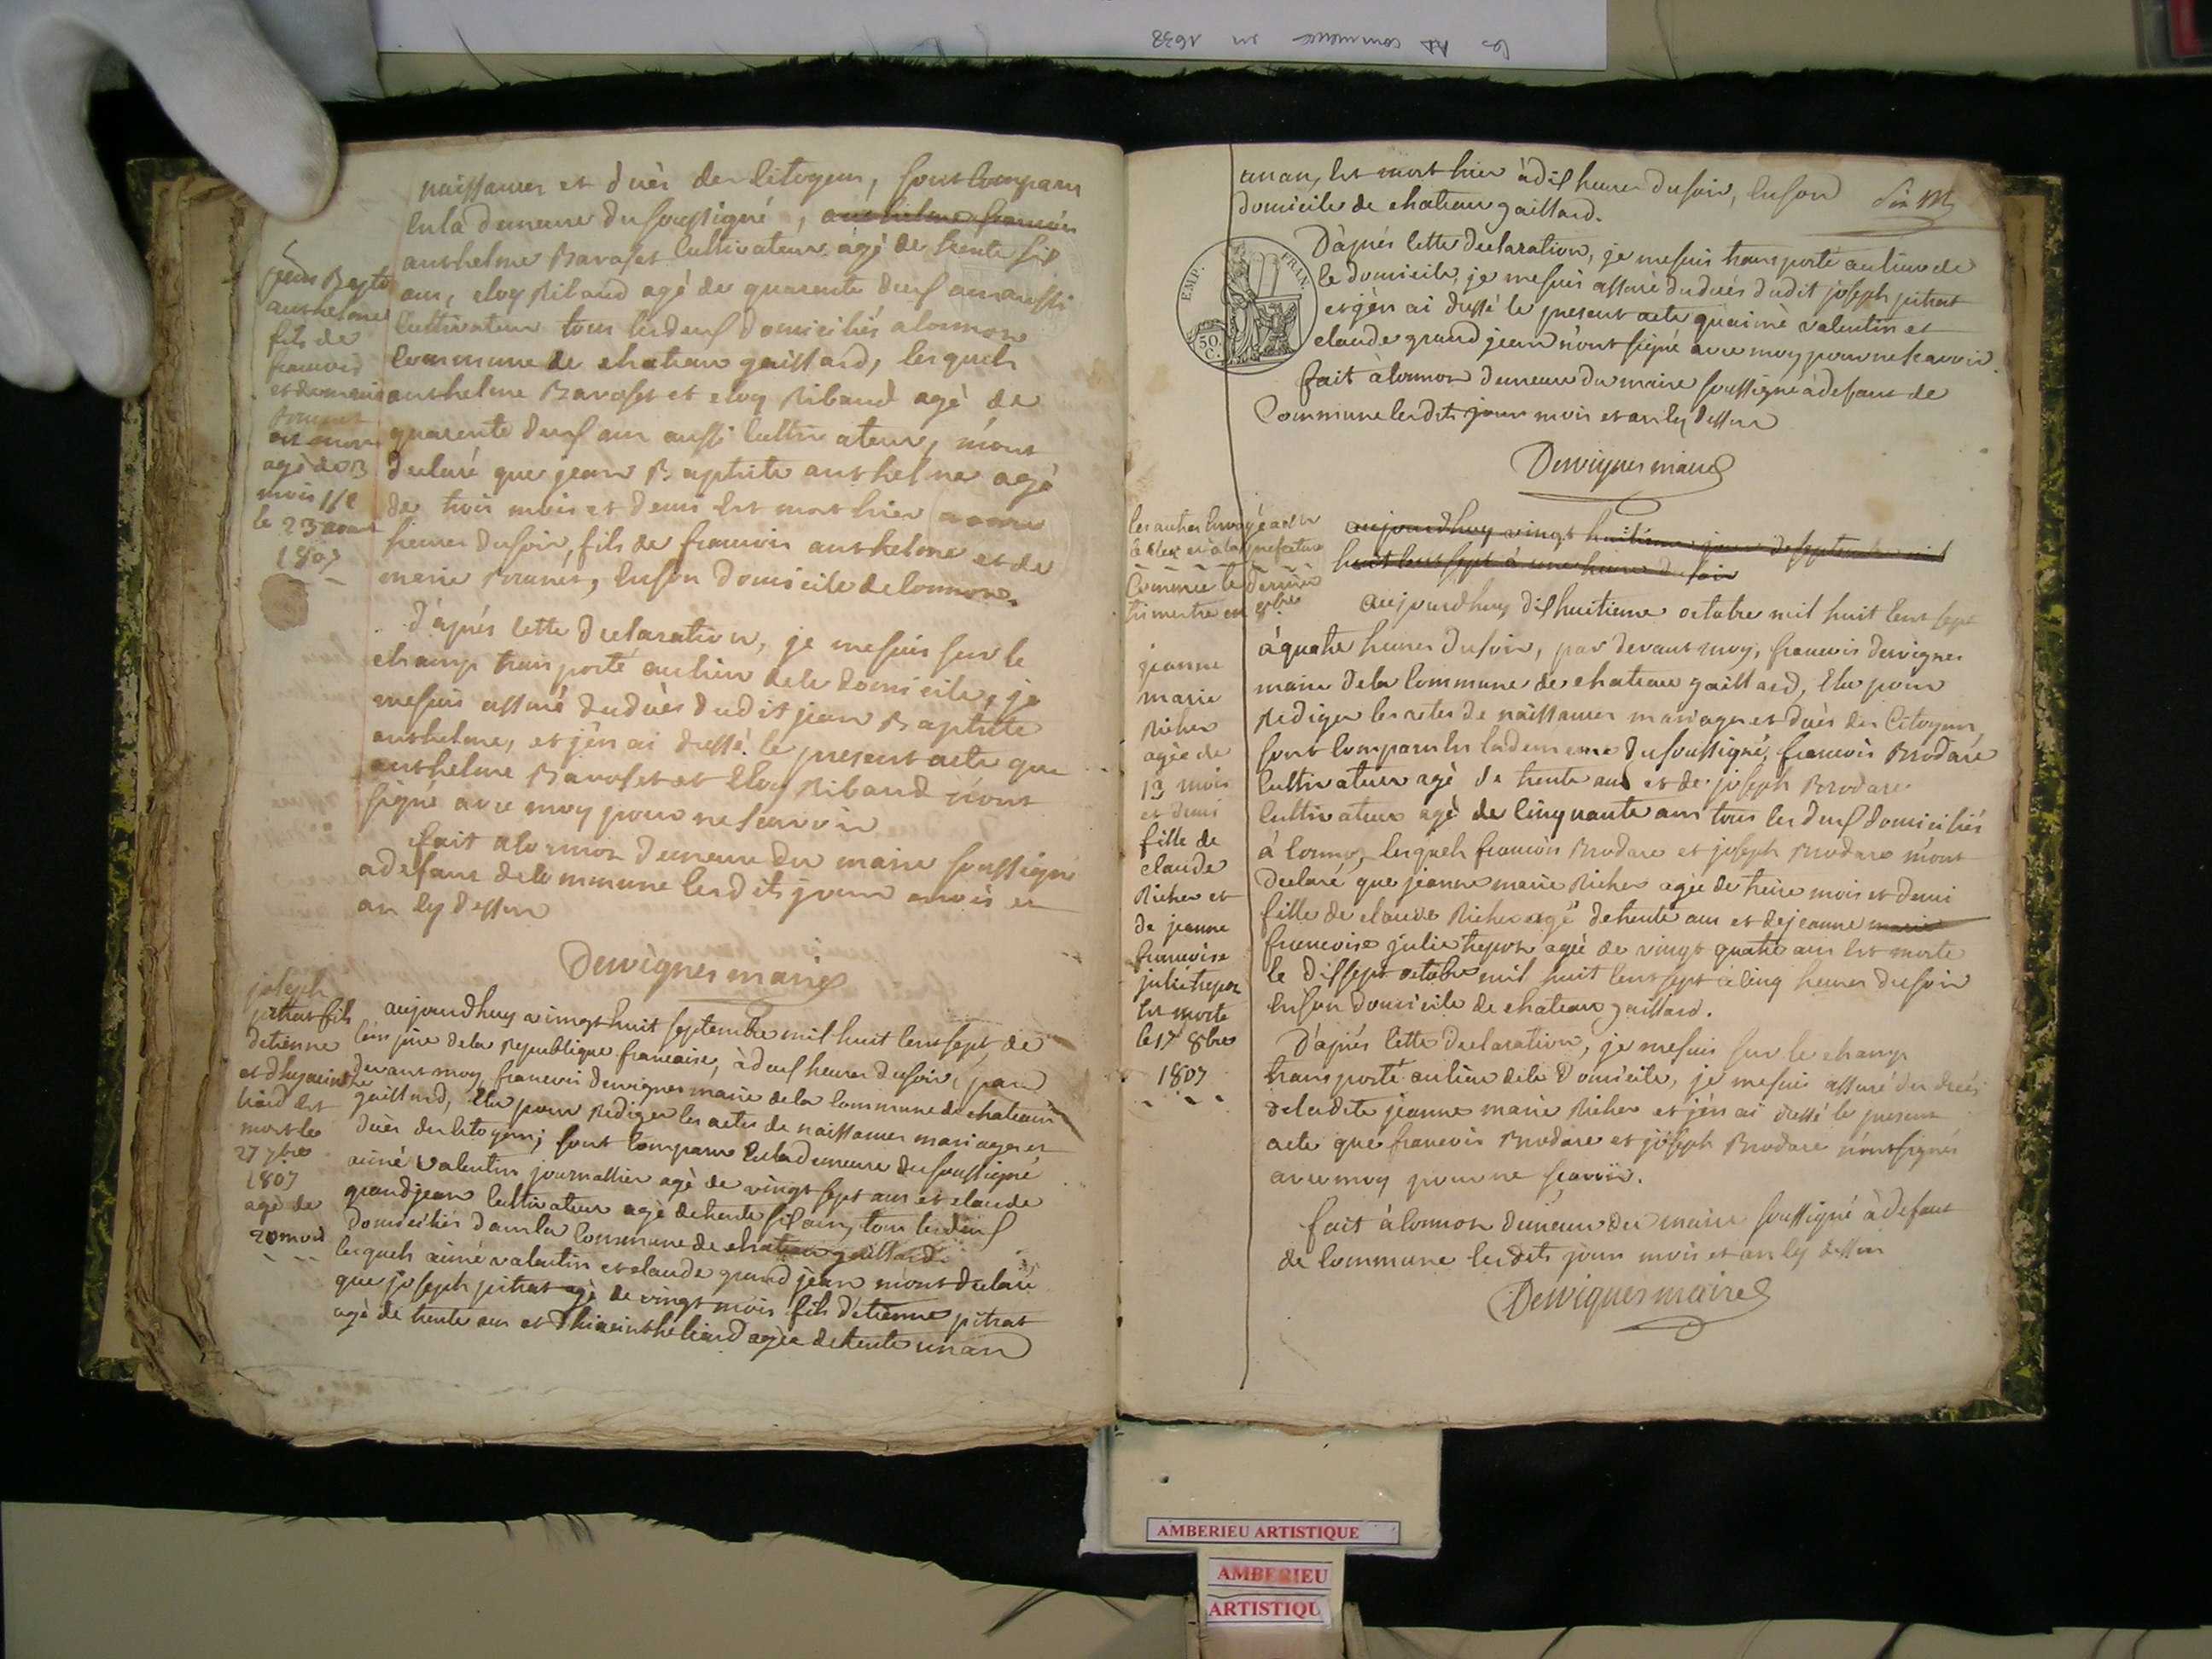 les commence en 1638
naissances et ducès des Citoyens, sont comparu
en la demeure du soussigné, anthelme francois
anthelme Baroset Cultivateur agé de trente six
ans, eloy Ribaud agé de quarente deux ans aussi
Cultivateur tous les deux domiciliés a lormon
Commune de chateau gaillard, lesquels
anthelme Baroset et eloy Ribaud agé de
quarente deux ans aussi Cultivateur, m'ont
declaré que jean Baptiste anthelme agé
de trois mois et demi est mort hier a onze
heures du soir, fils de francois anthelme et de
marie Brunet, en son domicile de lormon.
jean Bapte
anthelme
fils de
francois
et de marie
est mort
agé de 3
mois 1/2
le 23 aout
1807
d'aprés cette declaration, je me suis sur le
champ transporté au lieu de le domicile, je
me suis assuré du ducès dudit jean Baptiste
anthelme, et j'en ai dressé le present acte que
anthelme Baroset et Eloy Ribaud n'ont
signé avec moy pour ne scavoir
fait a lormon demeure du maire soussigné
a defaut de commune lesdits jour mois et
an cy dessus
Dervignes maire
joseph
pitrat fils
detienne
et dhyacinthe
liard est
mort le
27 7bre
1807
agé de
20 mois
aujourdhuy vingt huit septembre mil huit cent sept de
l'an de la Republique francaise, à deux heures du soir, par
devant moy francois Dervignes maire de la commune de chateau
gaillard, Elu pour Rediger les actes de naissances mariages et
ducès des Citoyens; sont comparu en la demeure du soussigné
aimé valentin journallier agé de vingt sept ans et claude
grandjean Cultivateur agé de trente six ans, tous les deux
domiciliés dans la Commune de chateau gaillard
lesquels aimé valentin et claude grand jean m'ont declaré
que joseph pitrat agé de vingt mois fils d'étienne pitrat
agé de trente ans et dhiacinthe liard agée de trente un an
un an, est mort hier à dix heures du soir, en son
domicile de chateau gaillard.
EMP. FRAN.
50. C.
D'aprés cette declaration, je me suis transporté au lieu de
le domicile, je me suis assuré du ducès dudit joseph pitrat
et j'en ai dressé le present acte qu'aimé valentin et
claude grand jean n'ont signé avec moy pour ne scavoir.
fait à lormon demeure du maire soussigné à defaut de
Commune lesdits jour mois et an cy dessus
Dervignes maire
aujourdhuy vingt huitieme jour de septembre mil
huit cent sept à une heure du soir
Comence le dernier
trimestre en 8bre
jeanne
marie
Richer
agée de
13 mois
et demi
fille de
claude
Richer et
de jeanne
francoise
julie trepoz
est morte
le 17 8bre
1807
aujourdhuy dix huitieme octobre mil huit cent sept
à quatre heures du soir, par devant moy, francois dervignes
maire de la Commune de chateau gaillard, Elu pour
Rediger les actes de naissances mariages et ducès des Citoyens,
sont comparu en la demeure du soussigné, francois Brodare
Cultivateur agé de trente ans et de joseph Brodare
Cultivateur agé de Cinquante ans tous les deux domiciliés
à lormon, lesquels francois Brodare et joseph Brodare m'ont
declaré que jeanne marie Richer agée de treize mois et demi
fille de claude Richer agé de trente ans et de jeanne marie
francoise julie trepoz agée de vingt quatre ans est morte
le dix sept octobre mil huit cent sept à cinq heures du soir
en son domicile de chateau gaillard.
D'aprés cette declaration, je me suis sur le champ
transporté au lieu de le Domicile, je me suis assuré du decès
de ladite jeanne marie Richer et j'en ai dressé le present
acte que francois Brodare et joseph Brodare n'ont signés
avec moy pour ne scavoir.
fait à lormon demeure du maire soussigné à defaut
de Commune lesdits jour mois et an cy dessus
Dervignes maire
AMBERIEU ARTISTIQUE
AMBERIEU
ARTISTIQU